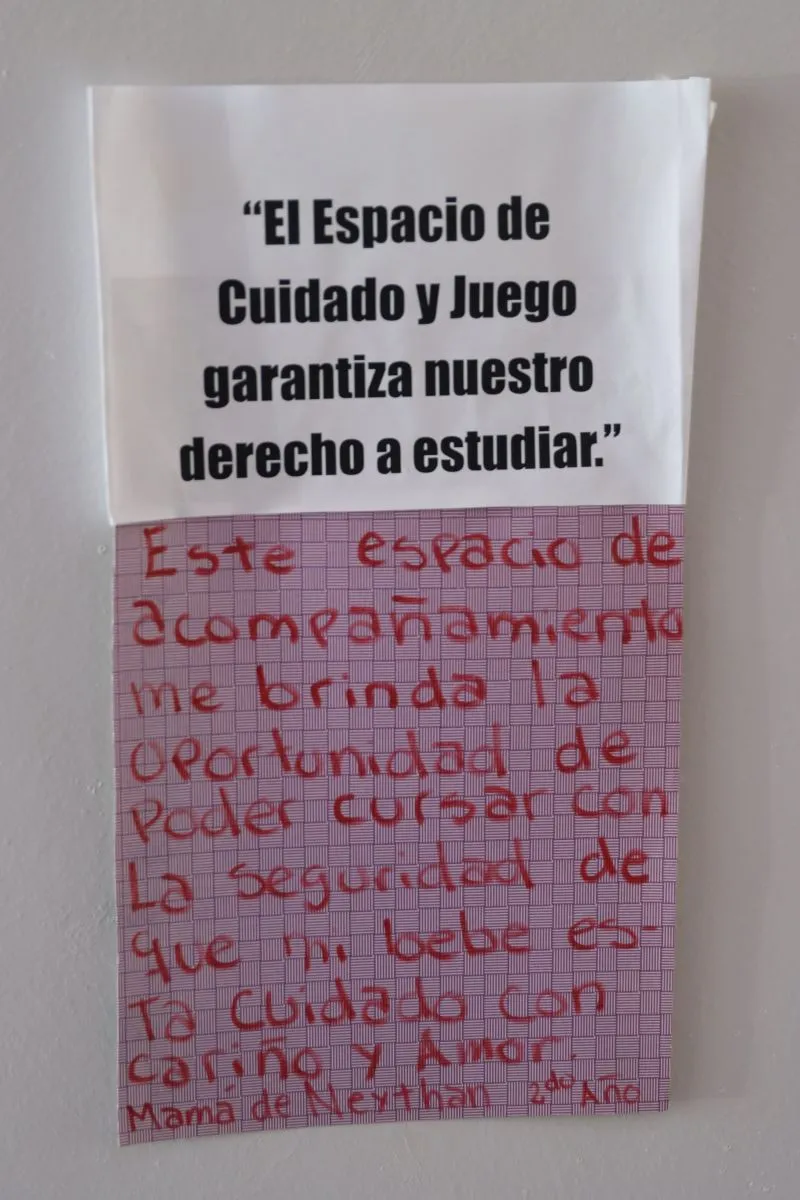 “El Espacio de
Cuidado y Juego
garantiza nuestro
derecho a estudiar.”
Este espacio de
acompañamiento
me brinda la
oportunidad de
Poder cursar con
La seguridad de
que mi bebe es-
Ta Cuidado con
cariño y Amor.
Mamá de Neythan 2do Año